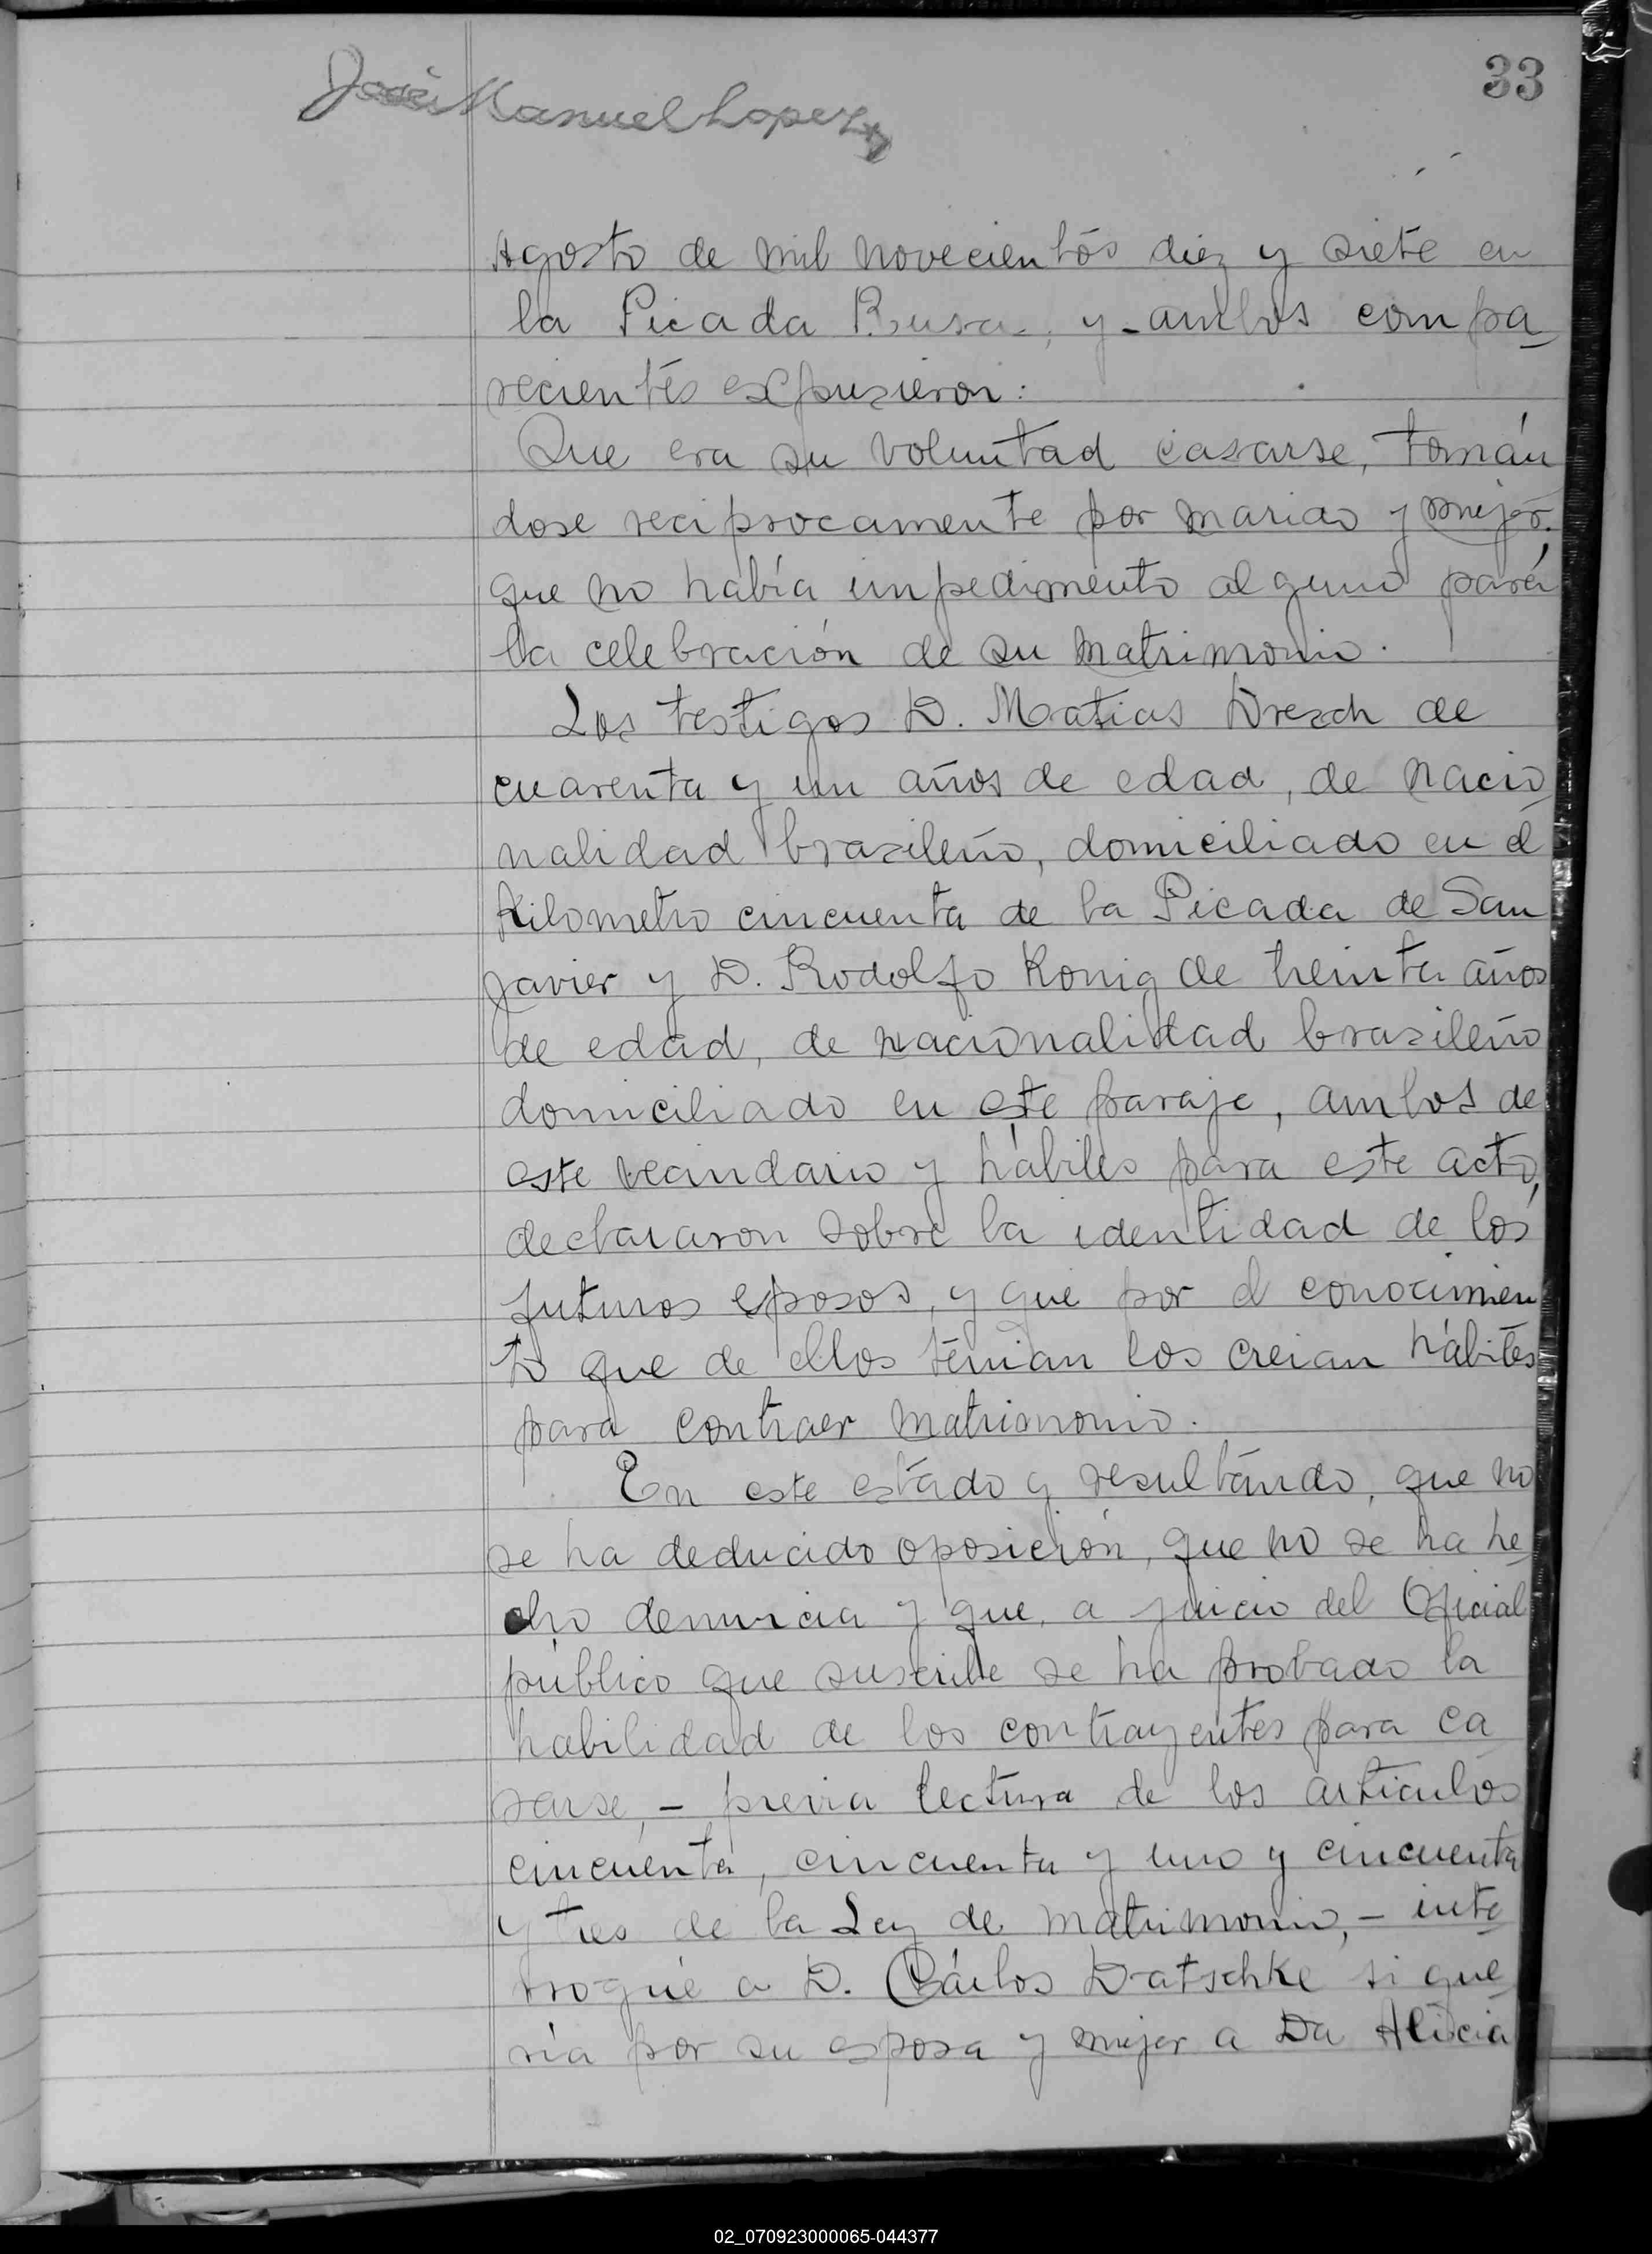 33
José Manuel Lopez
Agosto de mil novecientos diez y siete en
la Picada Rusa, y ambos compa
recientes expusieron:
Que era su voluntad casarse, tomán
dose reciprocamente por marido y mujer.
que no había impedimento alguno para
la celebración de su matrimonio.
Los testigos D. Matias Dresch de
cuarenta y un años de edad, de nacio
nalidad brazileño, domiciliado en el
Kilometro cincuenta de la Picada de San
Javier y D. Rodolfo Konig de treinta años
de edad, de nacionalidad brazileño
domiciliado en este paraje, ambos de
este vecindario y hábiles para este acto,
declararon sobre la identidad de los
futuros esposos, y que por el conocimien
to que de ellos tenian los creian hábiles
para contraer matrimonio.
En este estado y resultando, que no
se ha deducido oposición, que no se ha he
cho denuncia y que, a juicio del Oficial
público que suscribe se ha probado la
habilidad de los contrayentes para ca
sarse, - previa lectura de los artículos
cincuenta, cincuenta y uno y cincuenta
y tres de la Ley de matrimonio, - inte
rrogué a D. Cárlos Datschke si que
ría por su esposa y mujer a Da Alicia
02_070923000065-044377